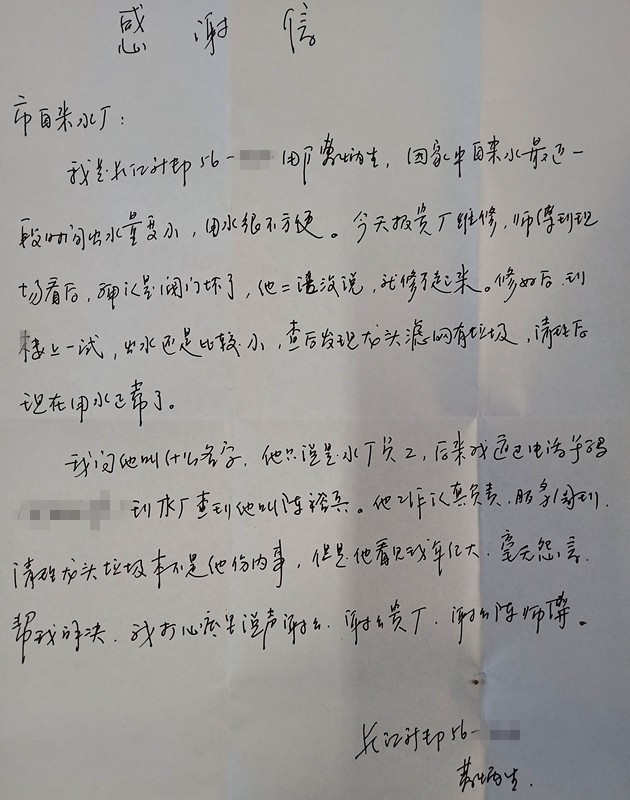 感谢信
市自来水厂:
我是长江新邨56- 用户黄炳生,因家中自来水最近一
段时间出水量变小,用水很不方便。今天报贵厂维修,师傅到现
场看后,确认是阀门坏了,他二话没说,就修了起来。修好后,到
楼上一试,出水还是比较小,查后发现龙头滤网有垃圾,清理后
现在用水正常了。
我问他叫什么名字,他只说是水厂员工,后来我通过电话号码
到水厂查到他叫陈裕兵。他工作认真负责,服务周到,
清理龙头垃圾本不是他份内事,但是他看见我年纪大,毫无怨言,
帮我解决,我打心底里说声谢谢,谢谢贵厂,谢谢陈师傅。
长江新邨56-
黄炳生.